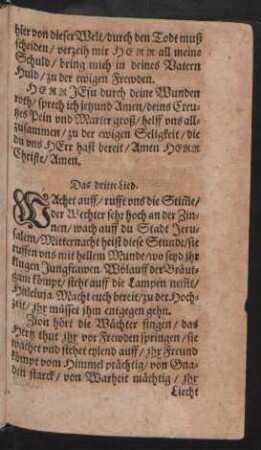 hier von dieser Welt/durch den Todt muß
scheiden/ verzeih mir HERR all meine
Schuld/ bring mich in deines Vatern
Huld/ zu der ewigen Frewden.
HERR JEsu durch deine Wunden
roth/ sprich ich jetzund Amen/deins Creu-
tzes Pein vnd Marter groß/ helff vns all-
zusammen/ zu der ewigen Seligkeit/ die
du vns HErr hast bereit/ Amen HERR
Christe/ Amen.
Das dritte Lied.
WAchet auff/ rufft vns die Stim̃e/
der Wechter sehr hoch an der Zin-
nen/ wach auff du Stadt Jeru-
salem/ Mitternacht heist diese Stunde/sie
ruffen vns mit hellem Munde/wo seyd jhr
klugen Jungfrawen. Wolauff der Bräut-
gam kömpt/ stehet auff die Lampen nem̃t/
Helleluja. Macht euch bereit/zu der Hoch-
zeit/ jhr müsset jhm entgegen gehn.
Zion hört die Wächter singen/ das
Hertz thut jhr vor Frewden springen/ sie
wachet vnd stehet eylend auff/ jhr Freund
kömpt vom Himmel prächtig/ von Gna-
den starck/ von Warheit mächtig/ jhr
Liecht